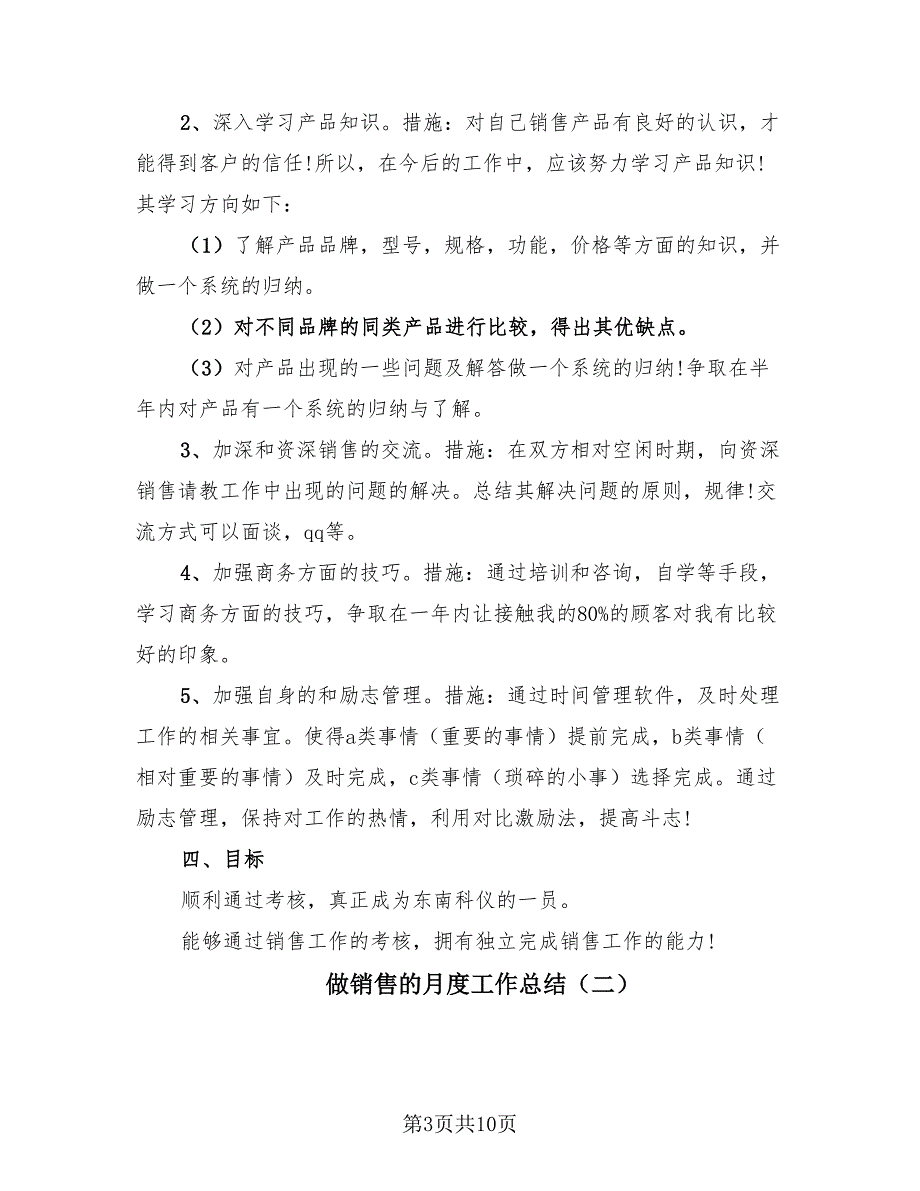 2、深入学习产品知识。措施：对自己销售产品有良好的认识，才
能得到客户的信任!所以，在今后的工作中，应该努力学习产品知识!
其学习方向如下：
（1）了解产品品牌，型号，规格，功能，价格等方面的知识，并
做一个系统的归纳。
（2）对不同品牌的同类产品进行比较，得出其优缺点。
（3）对产品出现的一些问题及解答做一个系统的归纳!争取在半
年内对产品有一个系统的归纳与了解。
3、加深和资深销售的交流。措施：在双方相对空闲时期，向资深
销售请教工作中出现的问题的解决。总结其解决问题的原则，规律!交
流方式可以面谈，qq等。
4、加强商务方面的技巧。措施：通过培训和咨询，自学等手段，
学习商务方面的技巧，争取在一年内让接触我的80%的顾客对我有比较
好的印象。
5、加强自身的和励志管理。措施：通过时间管理软件，及时处理
工作的相关事宜。使得a类事情（重要的事情）提前完成，b类事情（
相对重要的事情）及时完成，c类事情（琐碎的小事）选择完成。通过
励志管理，保持对工作的热情，利用对比激励法，提高斗志!
四、目标
顺利通过考核，真正成为东南科仪的一员。
能够通过销售工作的考核，拥有独立完成销售工作的能力!
做销售的月度工作总结（二）
第3页共10页